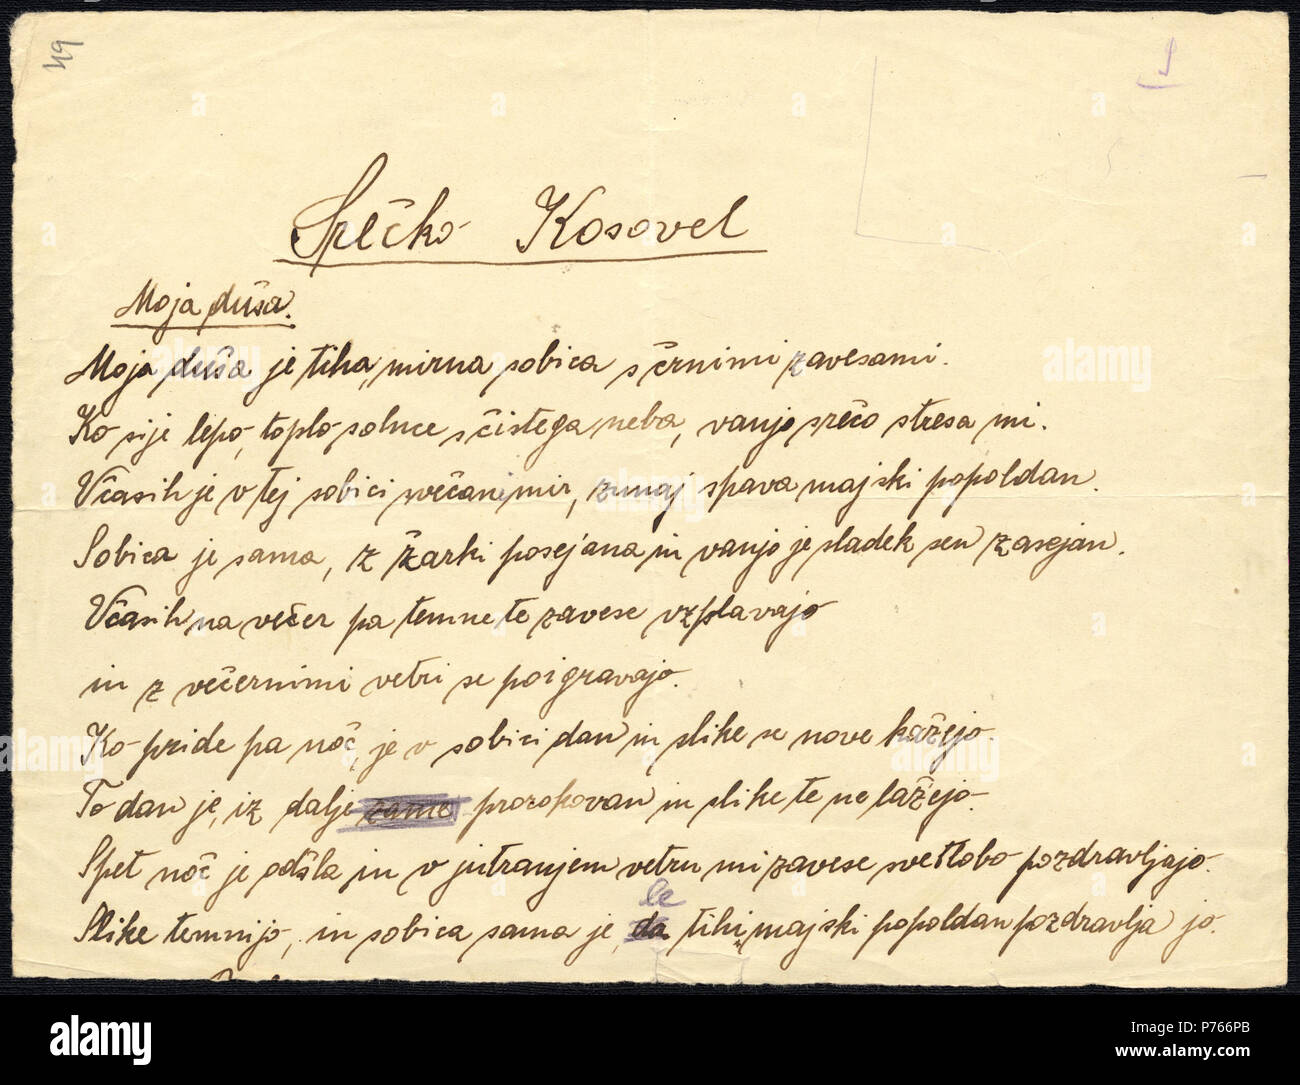 49
Srečko Kosovel
Moja duša.
Moja duša je tiha, mirna sobica s črnimi zavesami.
Ko sije lepo, toplo solnce s čistega neba, vanjo srečo stresa mi.
Včasih je v tej sobici svečani mir, zunaj spava majski popoldan.
Sobica je sama, z žarki posejana in vanjo je sladek sen zasejan.
Včasih na večer pa temne te zavese vzplavajo
in z večernimi vetri se poigravajo.
Ko pride pa noč, je v sobici dan in slike se nove kažejo.
To dan je, iz dalje samo prorokovan in slike te ne lažejo.
Spet noč je odšla in v jutranjem vetru mi zavese svetlobo pozdravljajo.
le
Slike temnijo, in sobica sama je, da tihi, majski popoldan pozdravlja jo.
alamy
alamy
Image ID: P766PB
www.alamy.com